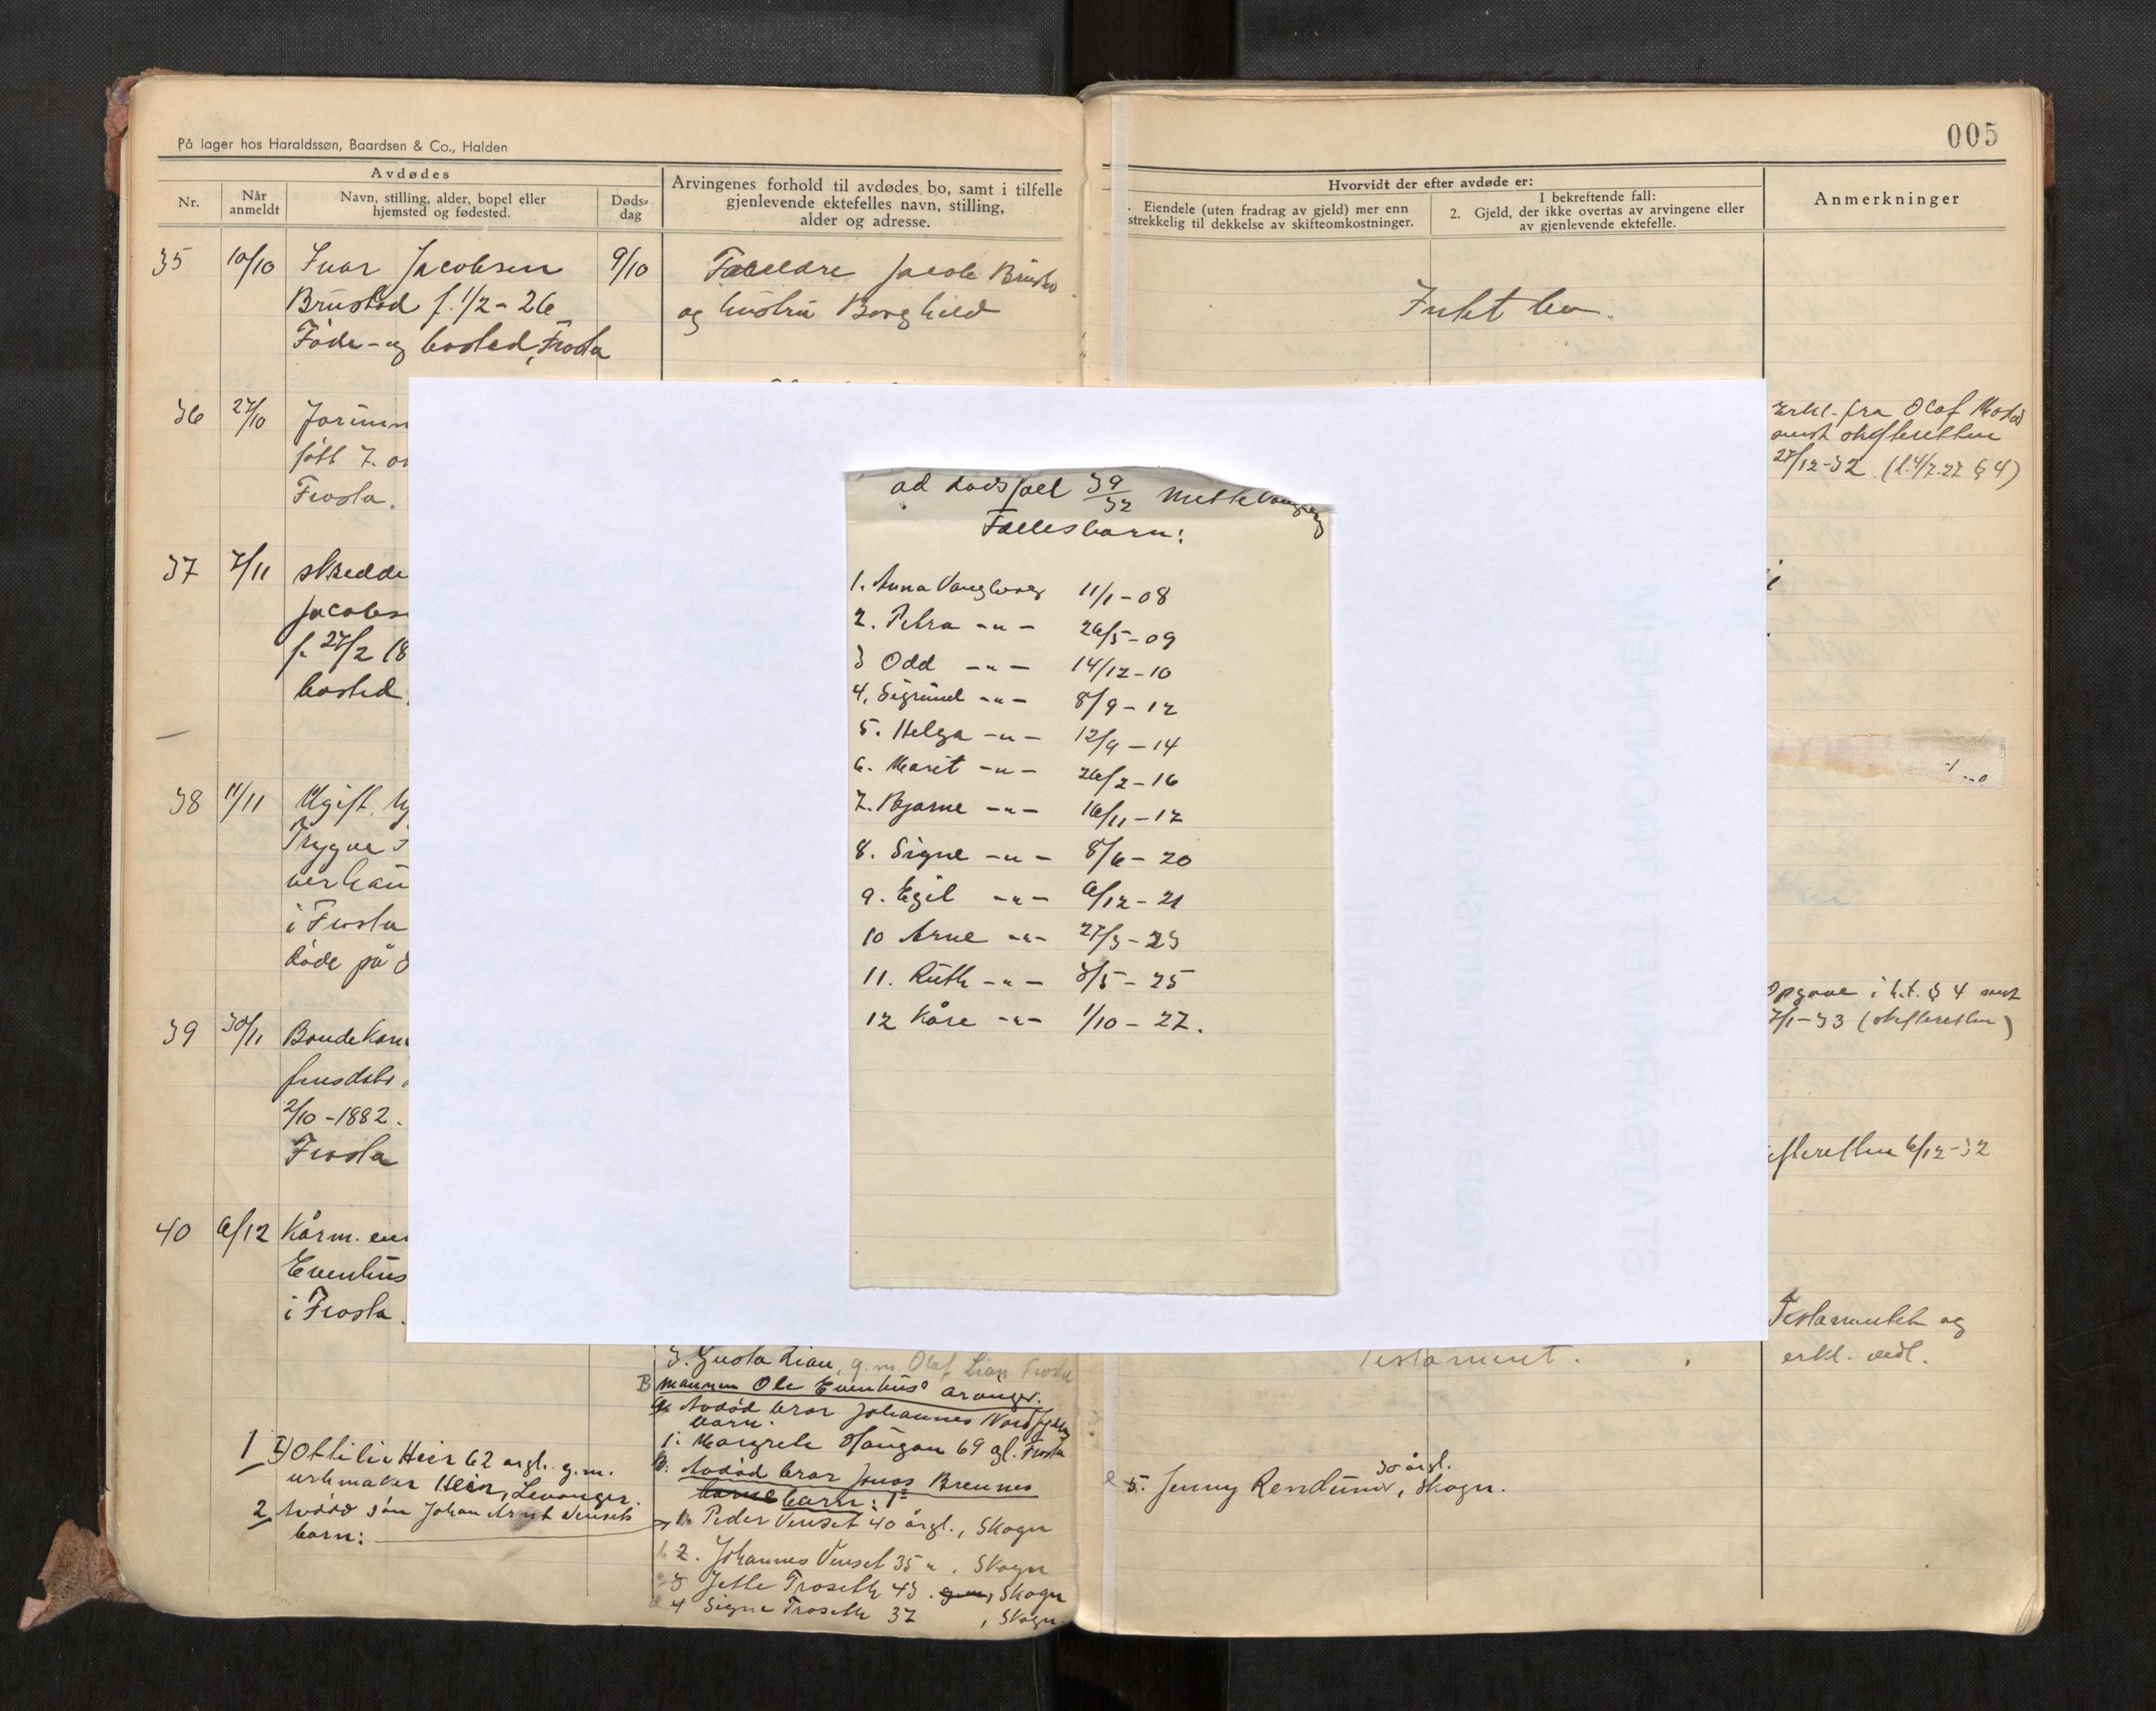 På lager hos Haraldssøn, Baardsen & Co., Halden
005
Avdødes
Nr.
Når anmeldt
Navn, stilling, alder, bopel eller hjemsted og fødested.
Døds-dag
Arvingenes forhold til avdødes bo, samt i tilfelle
gjenlevende ektefelles navn, stilling,
alder og adresse.
Hvorvidt der efter avdøde er:
. Eiendele (uten fradrag av gjeld) mer enn
strekkelig til dekkelse av skifteomkostninger.
I bekreftende fall:
2. Gjeld, der ikke overtas av arvingene eller
av gjenlevende ektefelle.
Anmerkninger
35 10/10 Ivar Jacobsen 9/10
Brustad f. 1/2-26
Føde- og bosted, Frosta
Foreldre Jacob
og hustru Borghild
Intet bo.
36 27/10
født 7.
Frosta.
Erkl. fra Olaf
sendt skifteretten
27/12-32. (l. 4/7.27 § 4)
37 7/11 skredde
Jacobs
f. 27/2 18
bosted
38 11/11 Ugift
Trygve
i Frosta
døde på
39 30/11 Bondekone
2/10-1882.
Frosta
Opgave i h.t. § 4 sendt
7/1-33 (skifteretten)
ifteretten 6/12-32
40 6/12 Kårm.
Evenhus
i Frosta.
Testamentet og
erkl. vedl.
Testament.
ad dødsfall 39/32
Fællesbarn:
1. Anna Vangberg 11/1-08
2. Petra -"- 26/5-09
3 Odd -"- 14/12-10
4. Sigrund -"- 8/9-12
5. Helga -"- 12/9-14
6. Marit -"- 26/2-16
7. Bjarne -"- 16/11-17
8. Signe -"- 8/6-20
9. Egil -"- 6/12-21
10 Arne -"- 27/3-23
11. Ruth -"- 3/5-25
12 Kåre -"- 1/10-27.
3. Gusta Lian, g.m. Olaf Lian Frosta
B mannen Ole Evenhus' arvinger.
a. Avdød bror Johannes
barn:
1. Margrete Haugan 69 gl. Frosta
b. Avdød bror Jonas Brennes
barn:
1. Peder Venset 40 årgl., Skogn
2. Johannes Venset 35 ", Skogn
3 Jette Troseth 43, Skogn
4 Signe Troseth 37, Skogn
5. Jenny Rendum, 30 årgl. Skogn.
1 Ottilie Heir 62 årgl. g.m.
urmaker Heir, Levanger.
2 Avdød søn Johan Arnt Vensets
barn: